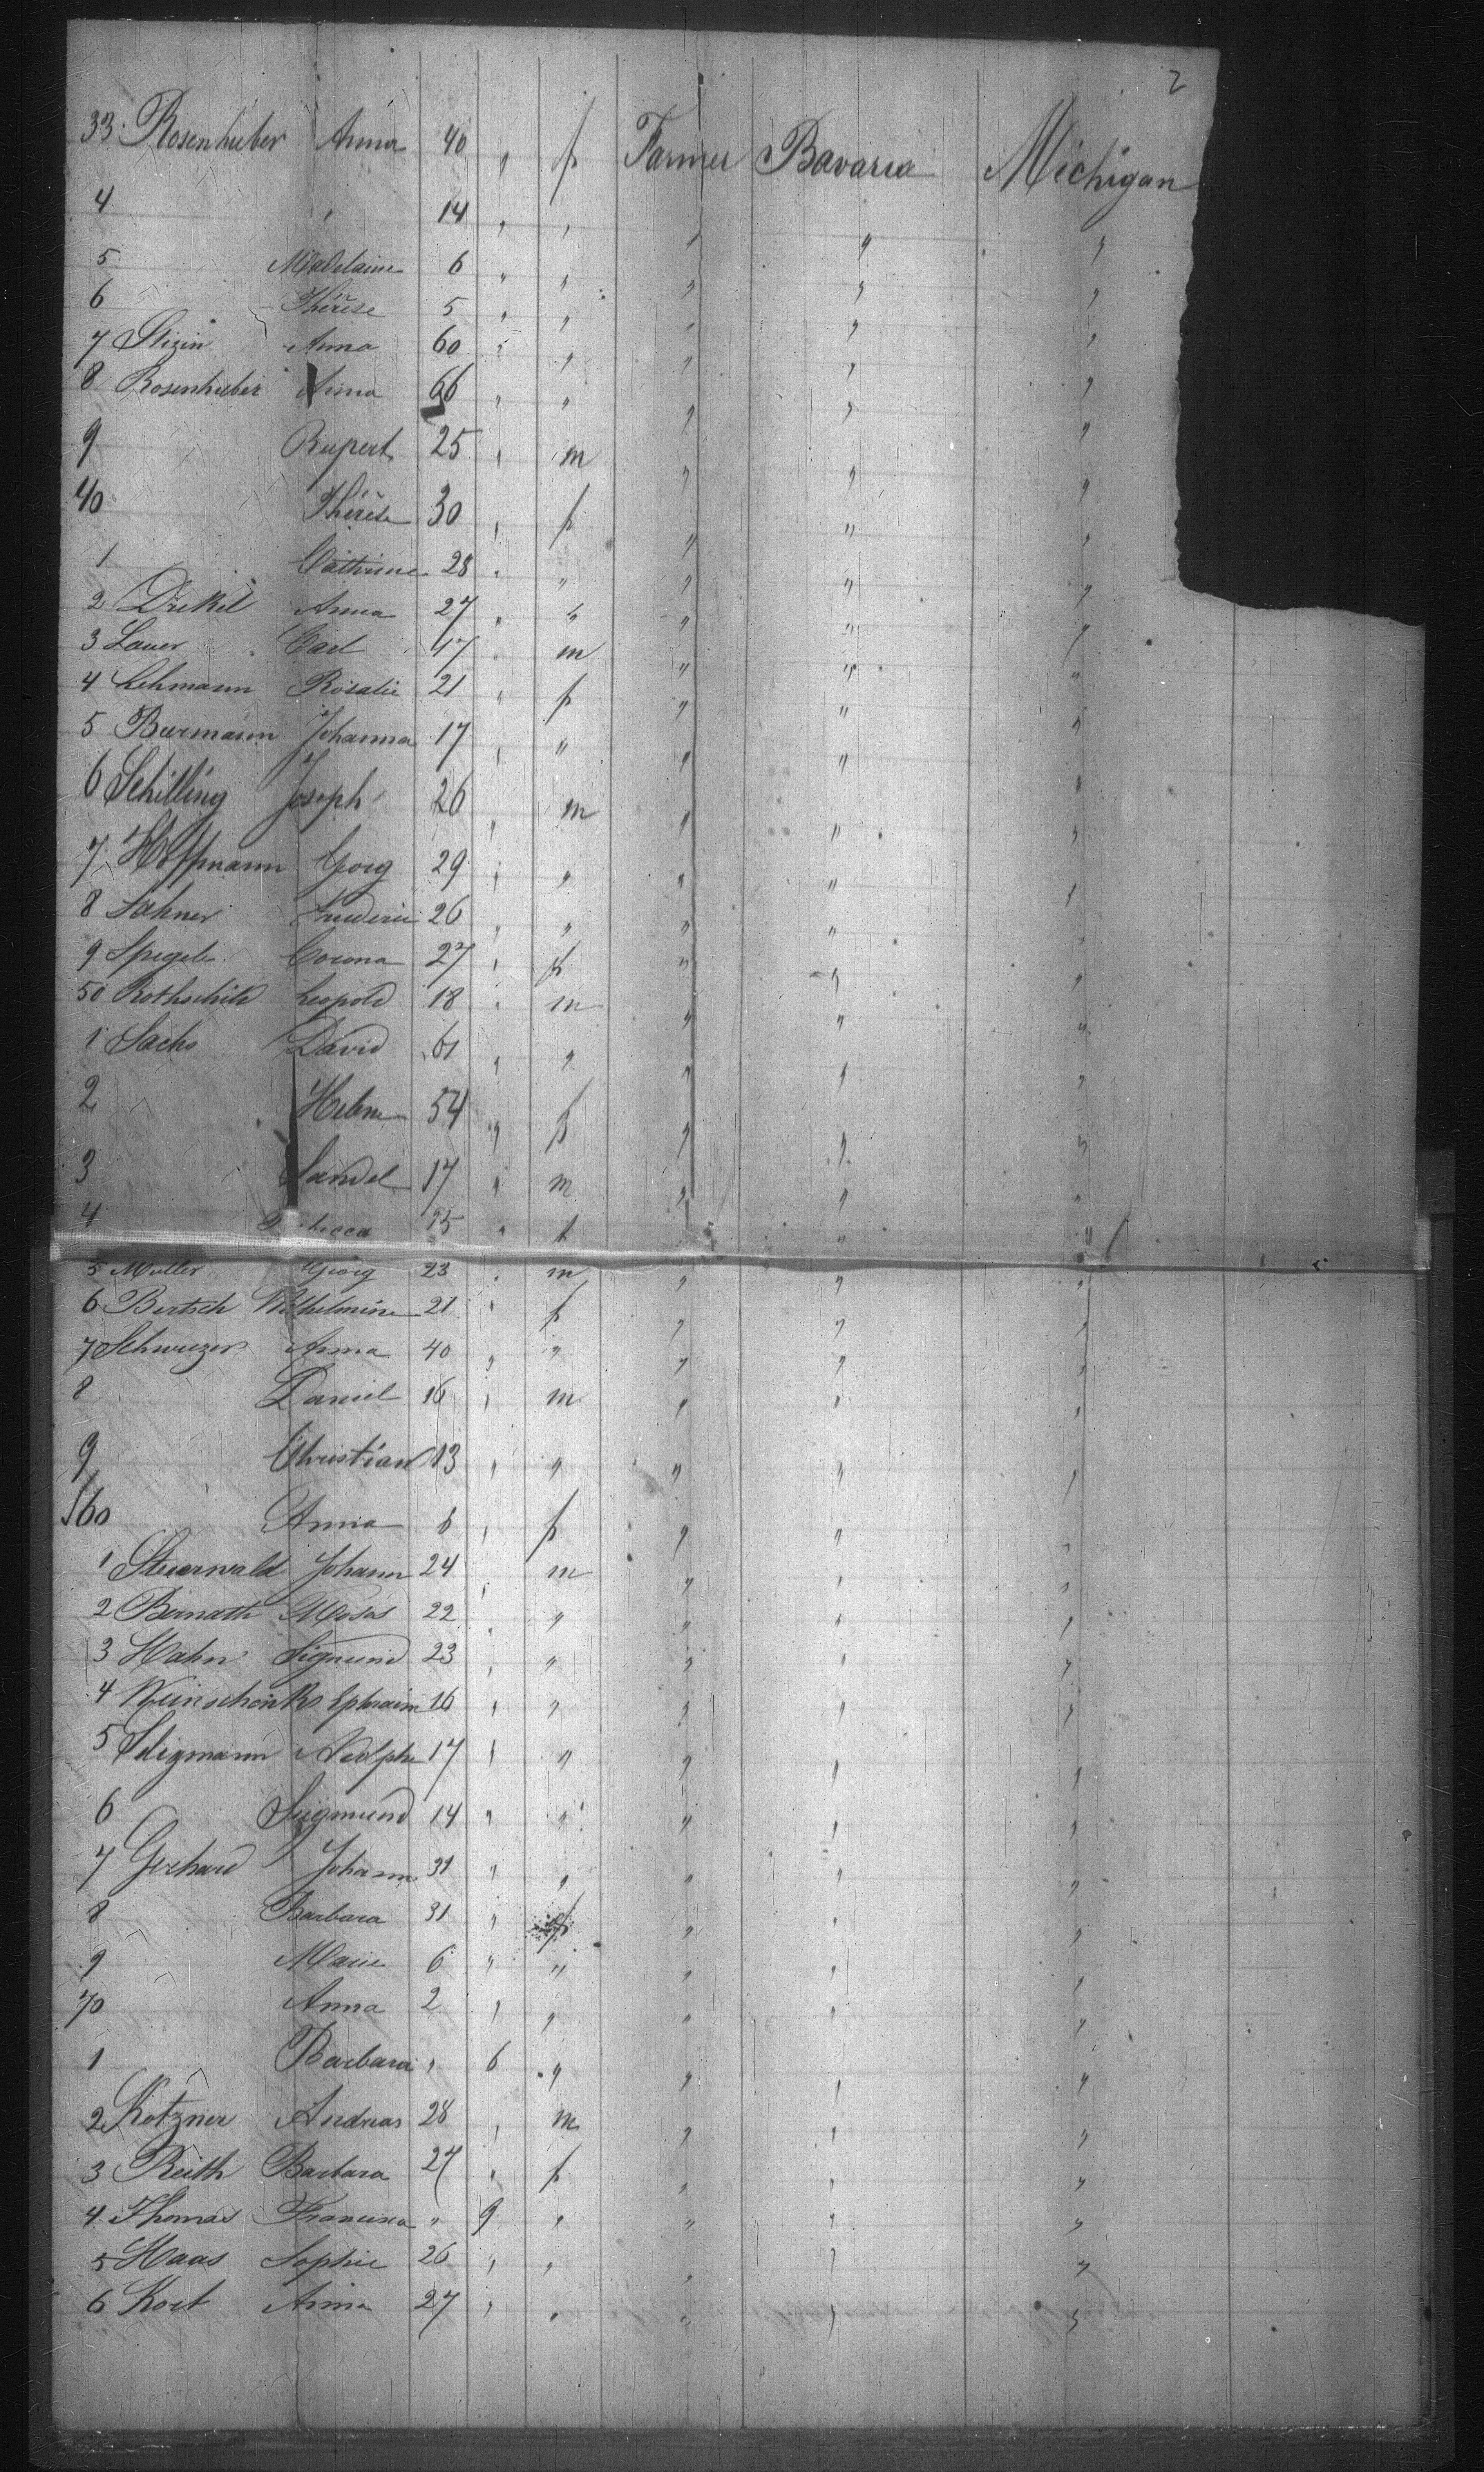 2
33 Rosenhuber Anna 40 " f Farmer Bavaria Michigan
4 " 14 " " " " "
5 Madelaine 6 " " " " "
6 Thérèse 5 " " " " "
7 Anna 60 " " " " "
8 Rosenhuber Anna 66 " " " " "
9 Rupert 25 " m " " "
40 Thérèse 30 " f " " "
1 Cathrine 28 " " " " "
2 Anna 27 " " " " "
3 Lauer Carl 17 " m " " "
4 Lehmann Rosalie 21 " f " " "
5 Baermann Johanna 17 " " " " "
6 Schilling Joseph 26 " m " " "
7 Hoffmann Georg 29 " " " " "
8 Sahner Frederic 26 " " " " "
9 Spegele Corona 27 " f " " "
50 Rothschild Leopold 18 " m " " "
1 Sachs David 61 " " " " "
2 Helene 54 " f " " "
3 Sandel 17 " m " " "
4 15 " f " "
5 Muller Georg 23 " m " " "
6 Bertsch Wilhelmine 21 " f " " "
7 Schweizer Anna 40 " " " " "
8 Daniel 16 " m " " "
9 Christian 13 " " " " "
60 Anna 6 " f " " "
1 Steuerwald Johann 24 " m " " "
2 Bernath Moses 22 " " " " "
3 Hahn Sigmund 23 " " " " "
4 Weinschenk Ephraim 16 " " " " "
5 Seligmann Adolphe 17 " " " " "
6 Siegmund 14 " " " " "
7 Gerhard Johann 31 " " " " "
8 Barbara 31 " f " " "
9 Marie 6 " " " " "
70 Anna 2 " " " " "
1 Barbara " 6 " " " "
2 Kotzner Andreas 28 " m " " "
3 Reith Barbara 27 " f " " "
4 Thomas Francisca " 9 " " " "
5 Haas Sophie 26 " " " " "
6 Kort Anna 27 " " " " "